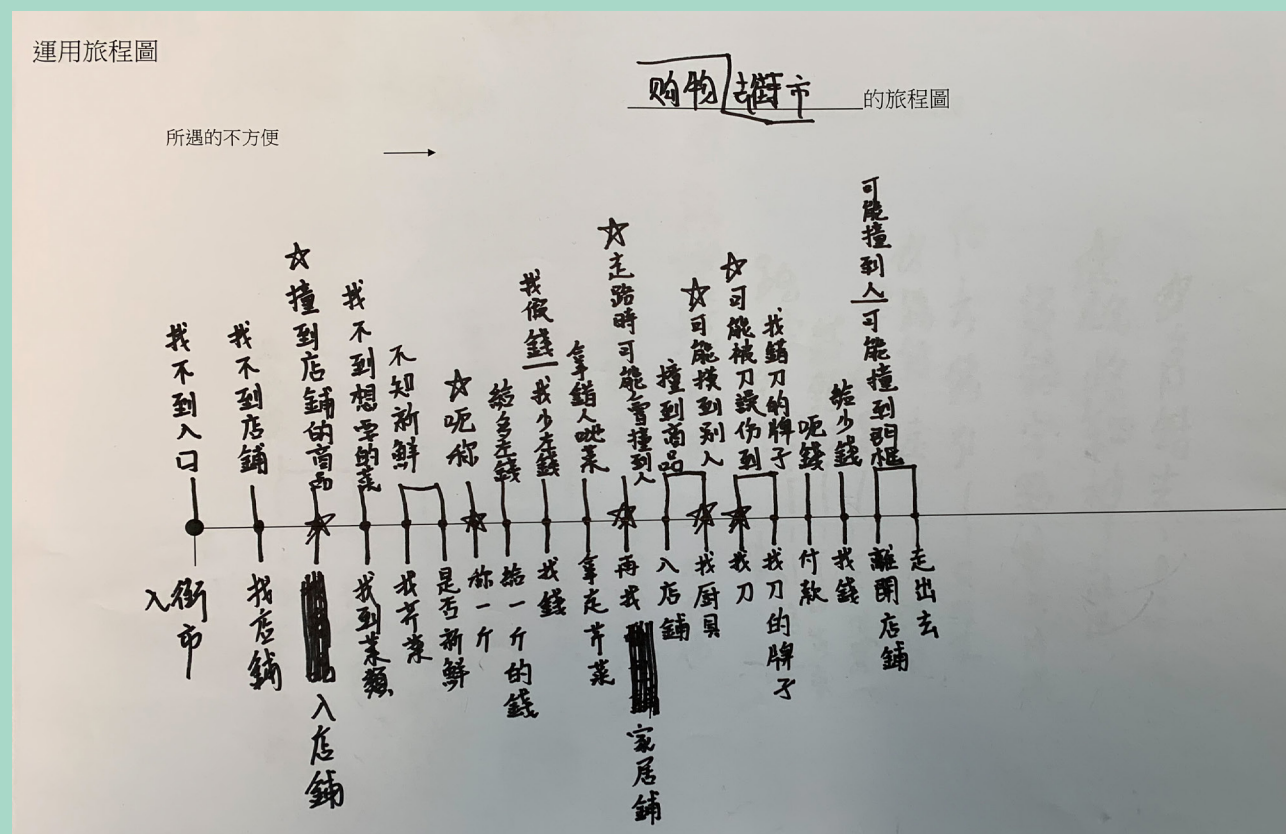 運用旅程圖
购物 街市 的旅程圖
所遇的不方便
找不到入口
找不到店鋪
☆撞到店鋪的商品
找不到想要的菜
不知新鮮
☆呃称
給多左錢
找假錢—找少左錢
拿錯人哋菜
☆走路時可能會撞到人
撞到商品
☆可能撞到別人
☆可能被刀誤伤到
找錯刀的牌子
呃錢
給少錢
可能撞到人—可能撞到
入街市
找店鋪
入店鋪
找到菜類
找芹菜
是否新鮮
称一斤
給一斤的錢
找錢
拿走芹菜
再找
家居鋪
入店鋪
找厨具
找刀
找刀的牌子
付款
找錢
離開店鋪
走出去